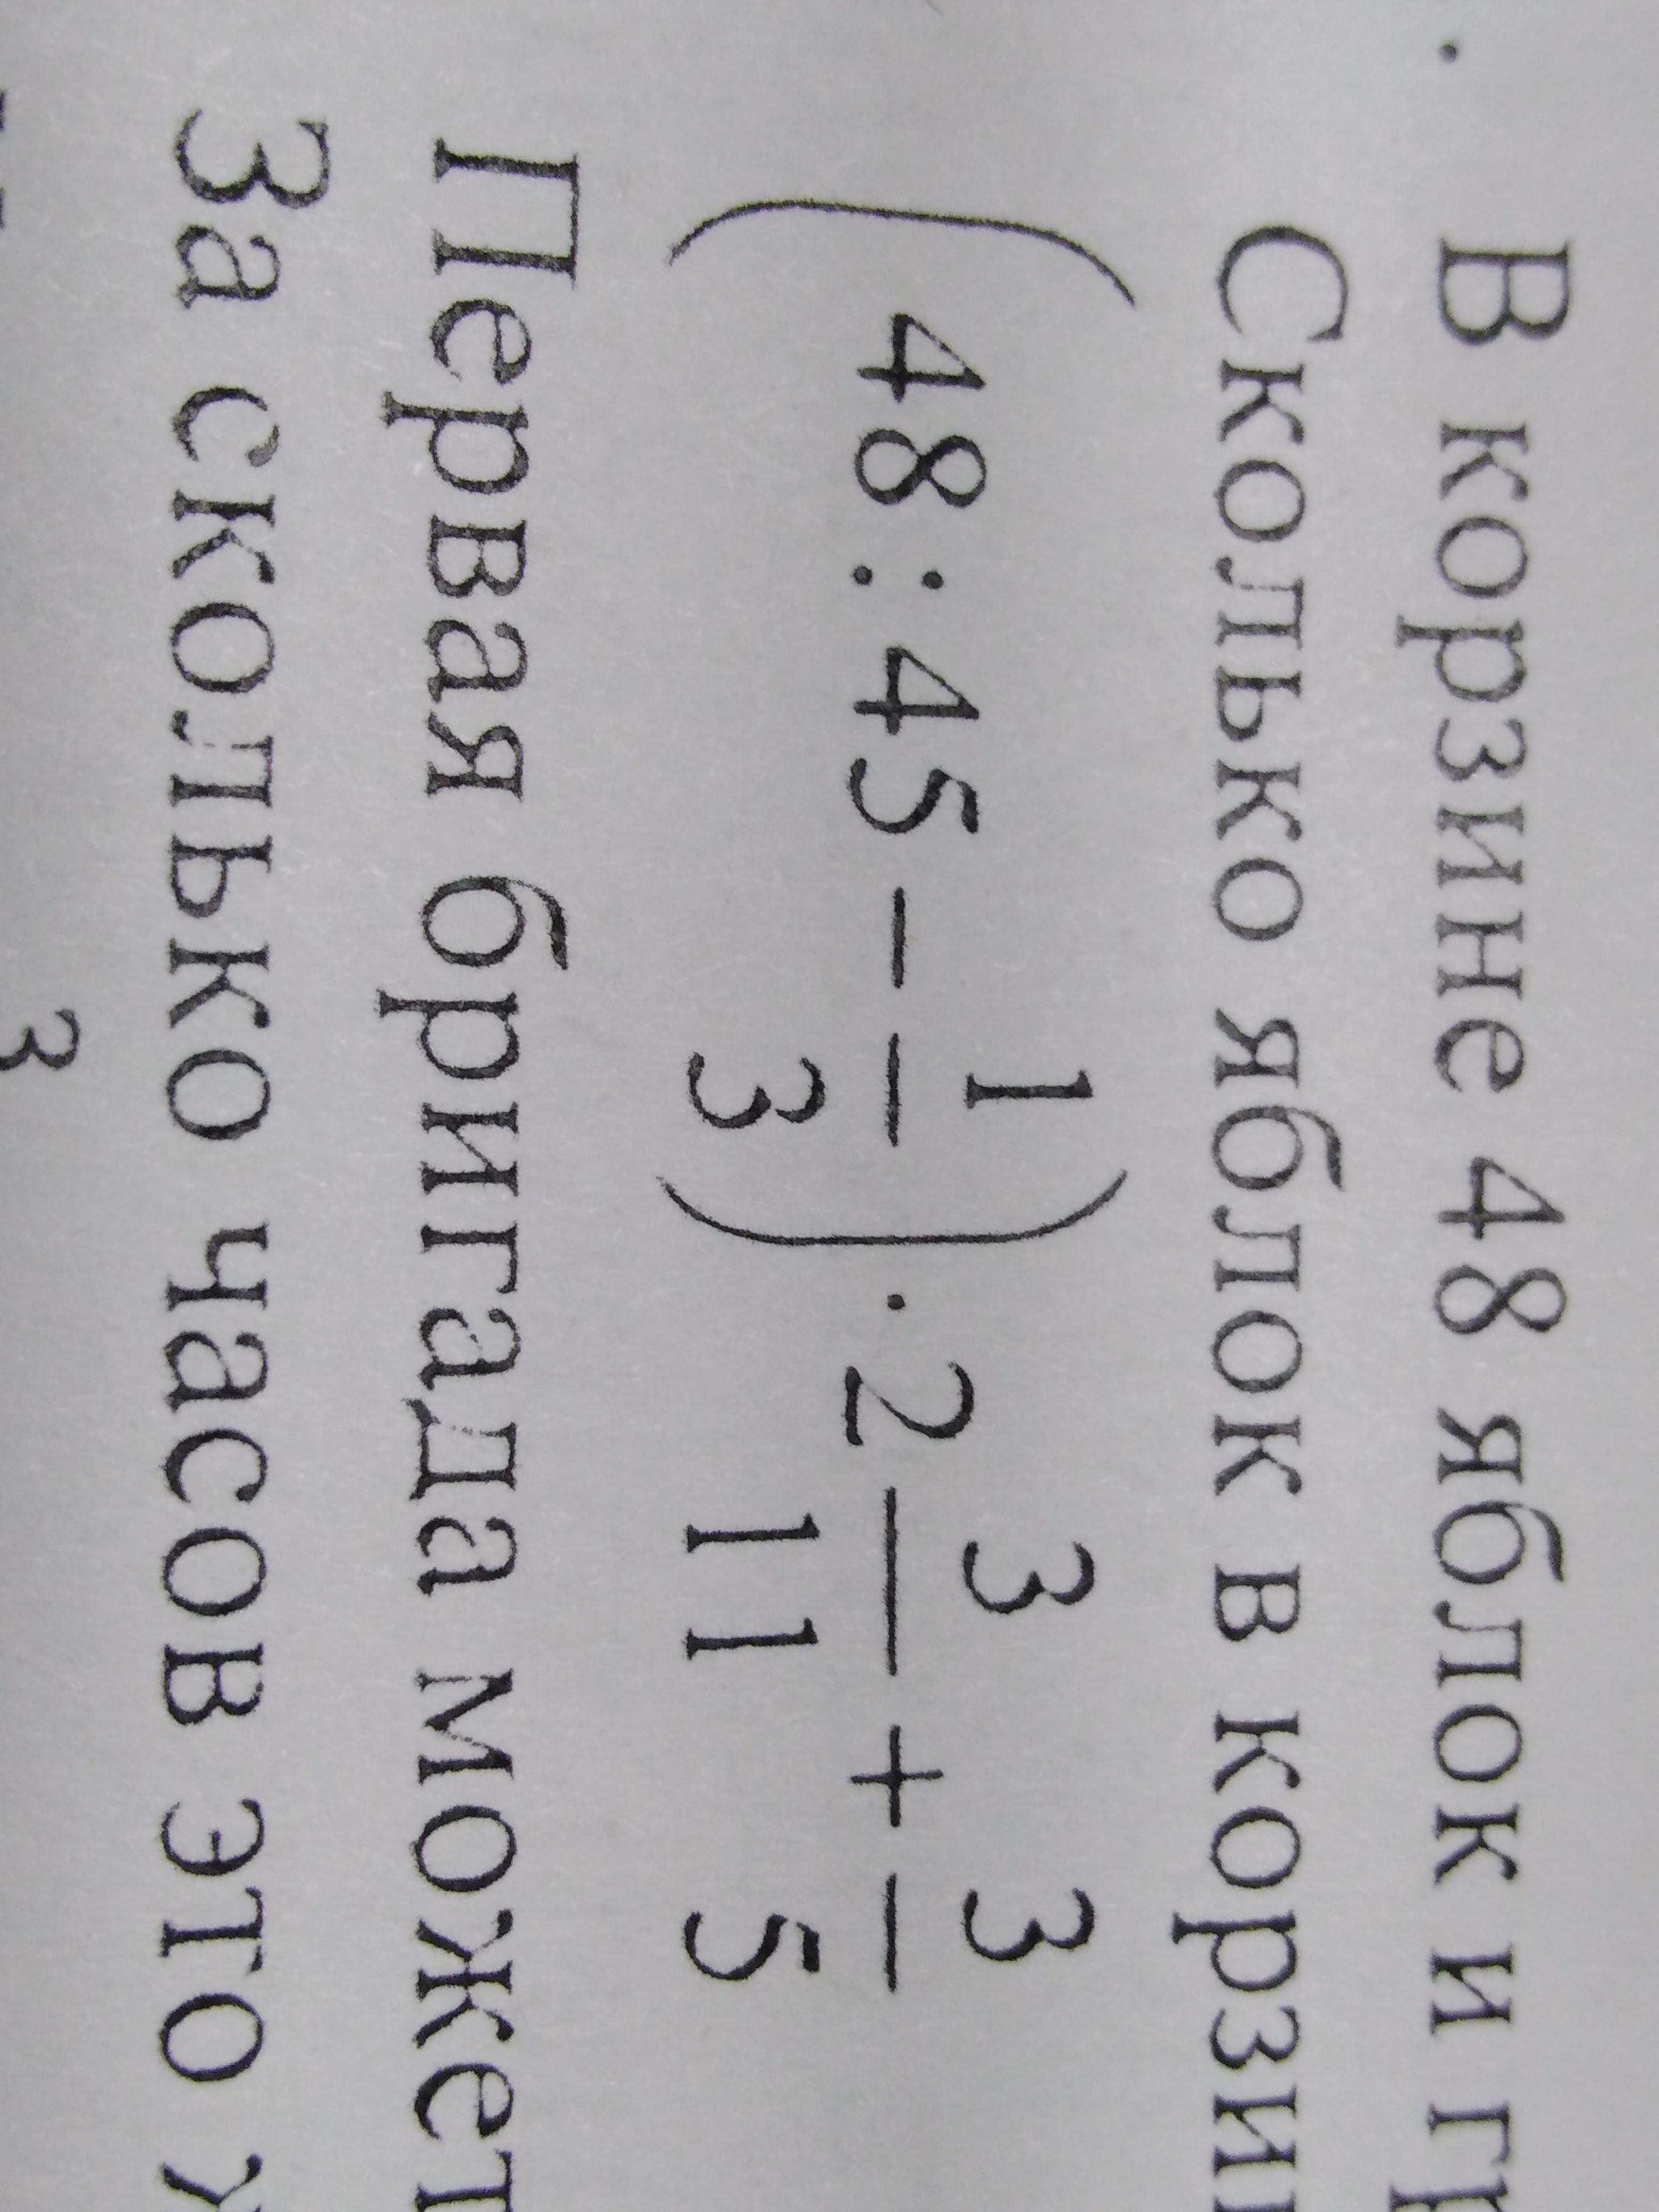 . В корзине 48 яблок и
Сколько яблок в
(48 : 45 − 1/3) · 2 3/11 + 3/5
Первая бригада может
За сколько часов это
3